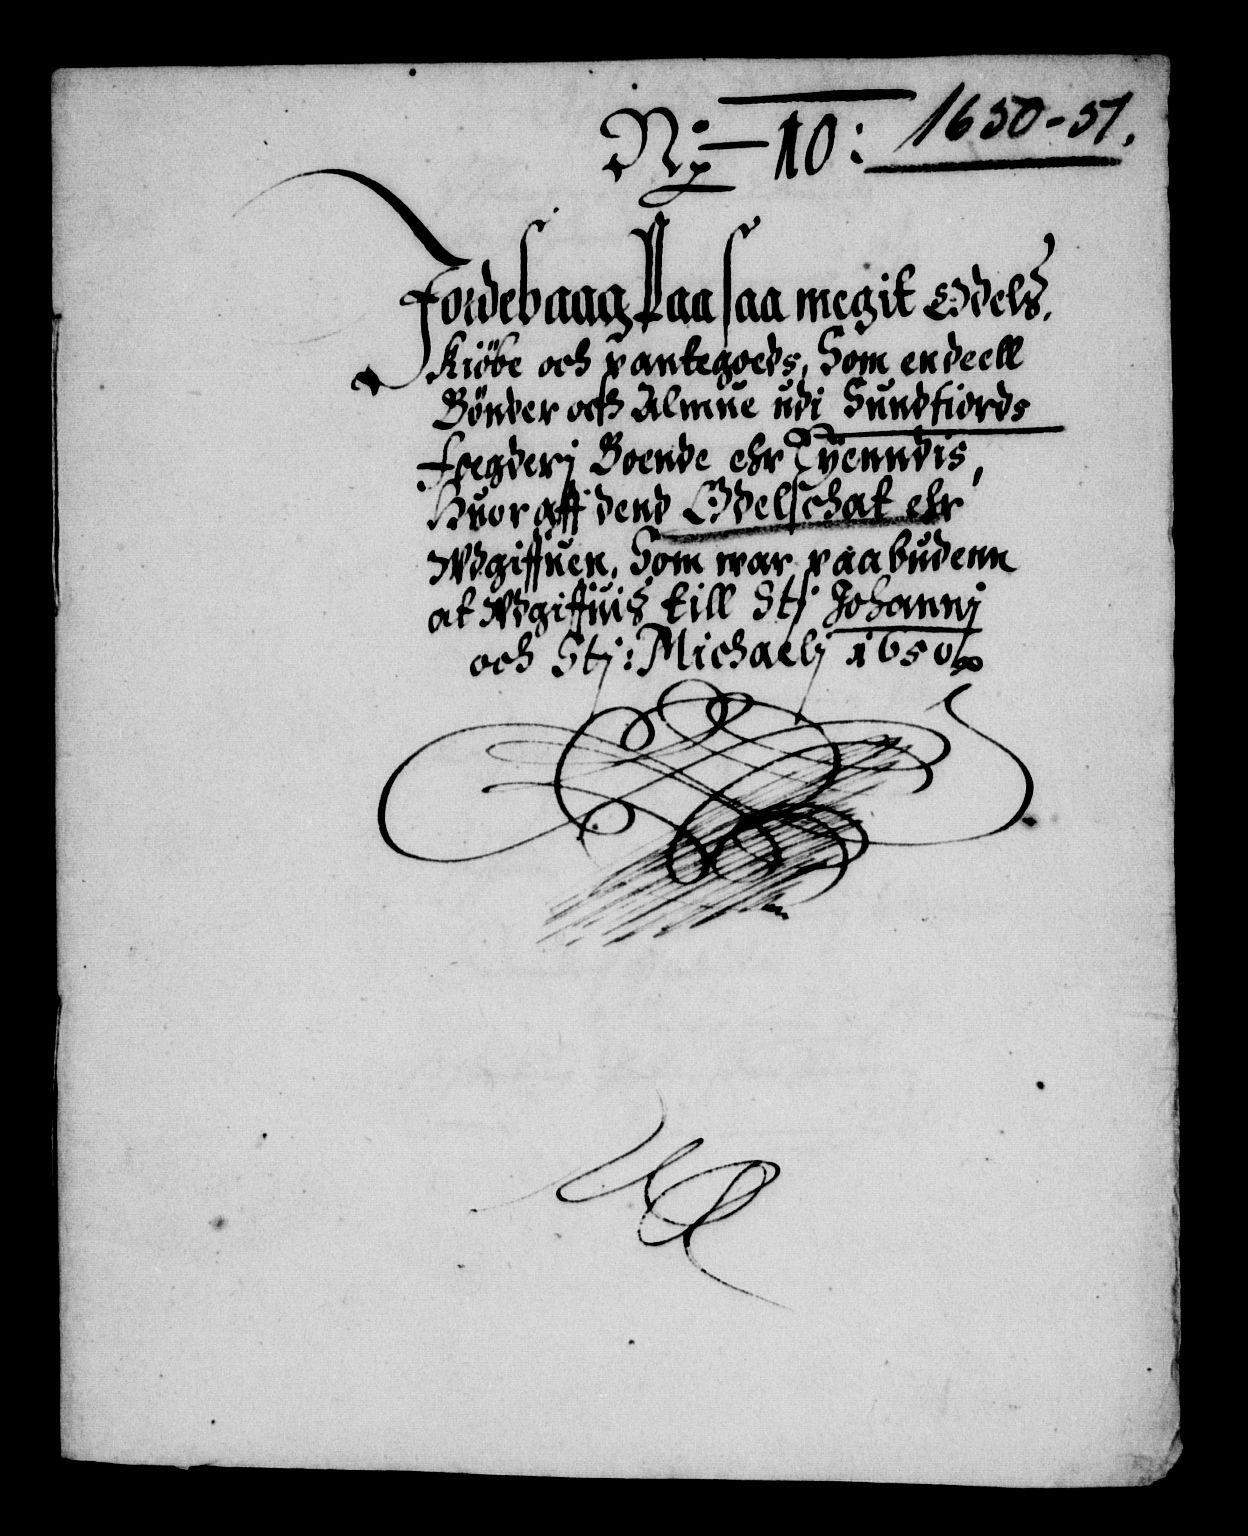 No 10: 1650-51.
Jordebaag Paa saa megit Odels,
Kiöbe och pantegoeds, Som en deell
Bönder och Almue udi Sundfiords
foegderj Boende ehr Eyenndis,
Huor aff dend Odelschat ehr
Udgiffuen, Som war paabudenn
at Udgiffuis till Stj Johannj
och Stj: Michaelj 1650